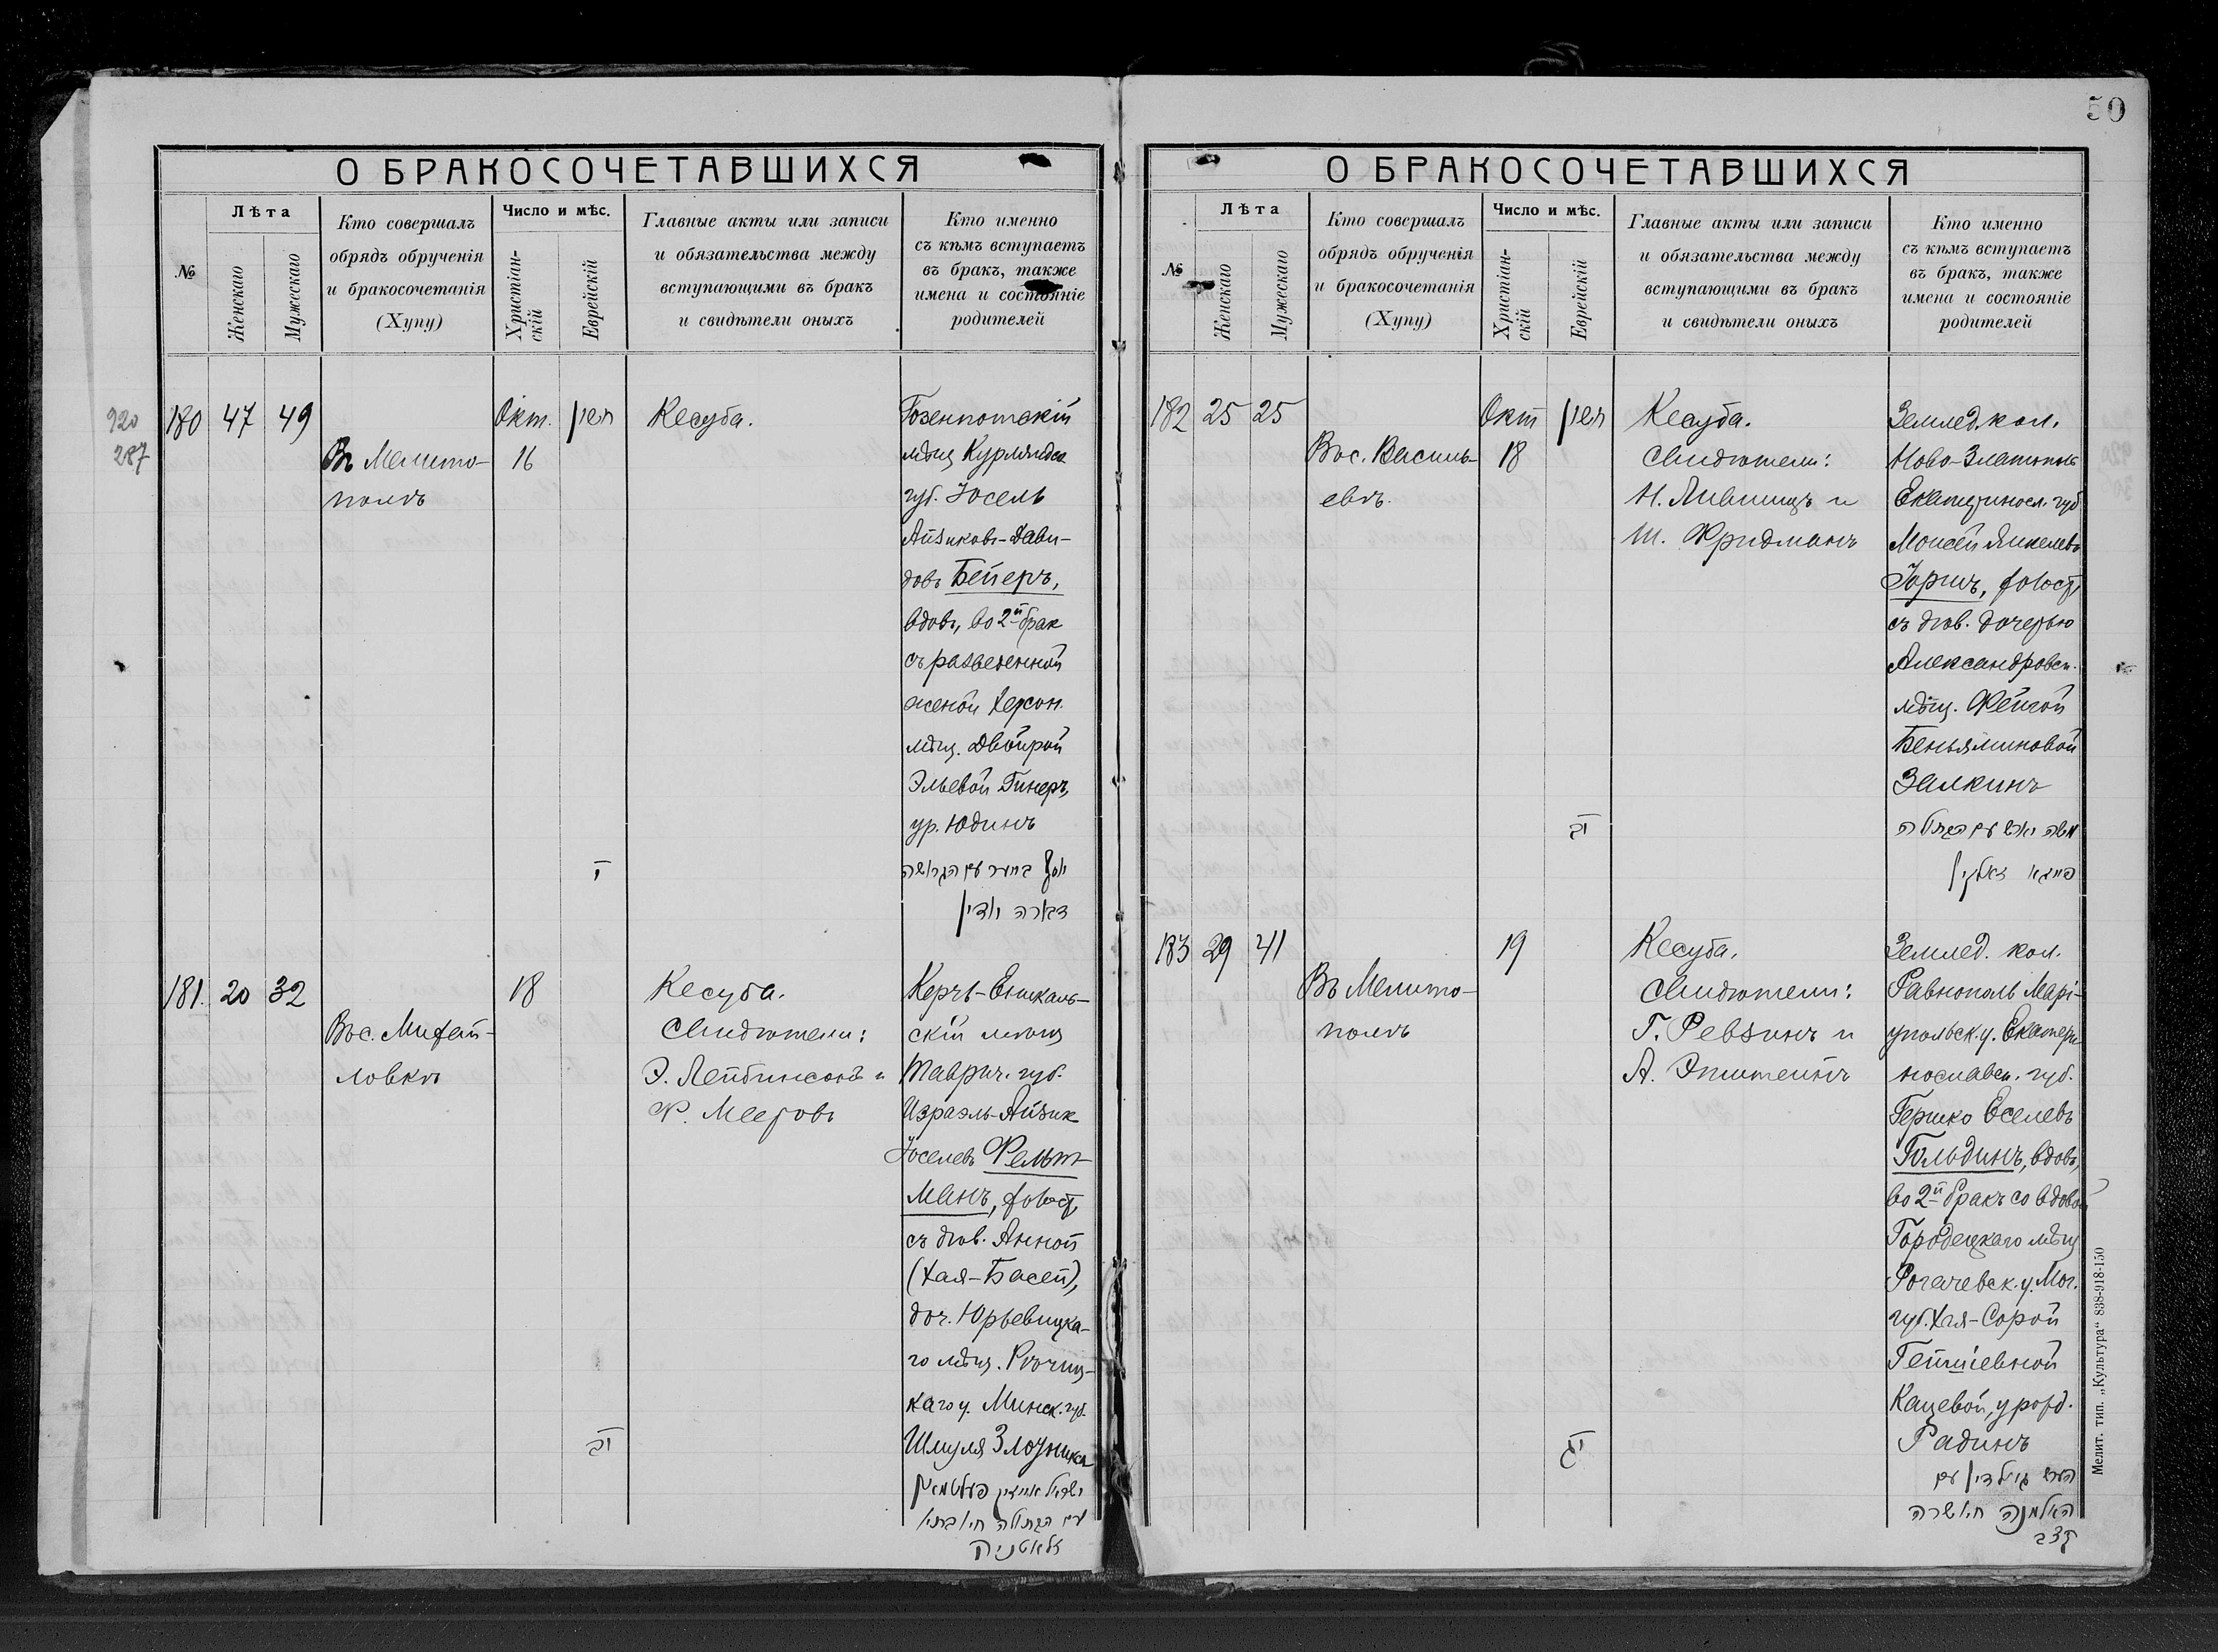 50
О БРАКОСОЧЕТАВШИХСЯ
№
Лѣта
Женскаго
Мужескаго
Кто совершалъ
обрядъ обрученія
и бракосочетанія
(Хупу)
Число и мѣс.
Христіан-
скій
Еврейскій
Главные акты или записи
и обязательства между
вступающими въ бракъ
и свидѣтели оныхъ
Кто именно
съ кѣмъ вступаетъ
въ бракъ, также
имена и состояніе
родителей
920
287
180 47 49
Въ Мелито-
полѣ
Окт.
16
י
Кесуба.
Газенпотскій
мѣщ. Курляндск.
губ. Іосель
Айзиковъ-Дави-
довъ Бейеръ,
вдов., во 2й брак
съ разведенной
женой Херсон.
мѣщ. Двойрой
Эльевой Гинеръ,
ур. Юдинъ
יוסף בייער עם הגרושה
דבורה יודין
181. 20 32
Въ с. Михай-
ловкѣ
18
יב
Кесуба.
Свидѣтели:
Э. Лейбинсонъ и
Ф. Мееровъ
Керчь-Еникаль-
скій мѣщ.
Таврич. губ.
Израэль-Айзик
Іоселевъ Фельт-
манъ, холост,
съ дѣв. Анной
(Хая-Басей),
доч. Юрьевицка-
го мѣщ. Рѣчиц-
каго у. Минск. губ.
Шмуля Злотника
ישראל אייזיק פעלטמאן
עם הבתולה חי׳ בתי׳
זלאטניק
О БРАКОСОЧЕТАВШИХСЯ
№
Лѣта
Женскаго
Мужескаго
Кто совершалъ
обрядъ обрученія
и бракосочетанія
(Хупу)
Число и мѣс.
Христіан-
скій
Еврейскій
Главные акты или записи
и обязательства между
вступающими въ бракъ
и свидѣтели оныхъ
Кто именно
съ кѣмъ вступаетъ
въ бракъ, также
имена и состояніе
родителей
182 25 25
Въ с. Василь-
евкѣ.
Окт
18
יב
Кесуба.
Свидѣтели:
Н. Лившицъ и
Ш. Фридманъ
Землед. кол.
Ново-Златополь
Екатериносл. губ
Моисей Янкелевъ
Горинъ, холост,
съ дѣв. дочерью
Александровск.
мѣщ. Фейгой
Беньяминовой
Залкинъ
פייגא זאלקין
183 29 41
Въ Мелито-
полѣ
19
יג
Кесуба.
Свидѣтели:
Г. Ревзинъ и
А. Эпштейнъ
Землед. кол.
Равнополь Марі-
упольск. у. Екатери
нославск. губ.
Гершко Еселевъ
Гольдинъ, вдов.,
во 2й бракъ со вдовой
Городецкаго мѣщ.
Рогачевск. у. Мог.
губ. Хая-Сорой
Кацевой, урожд.
Радинъ
הערש גולדין עם
האלמנה חי׳ שרה
קצב
Мелит. тип. „Культура“ 838-918-150